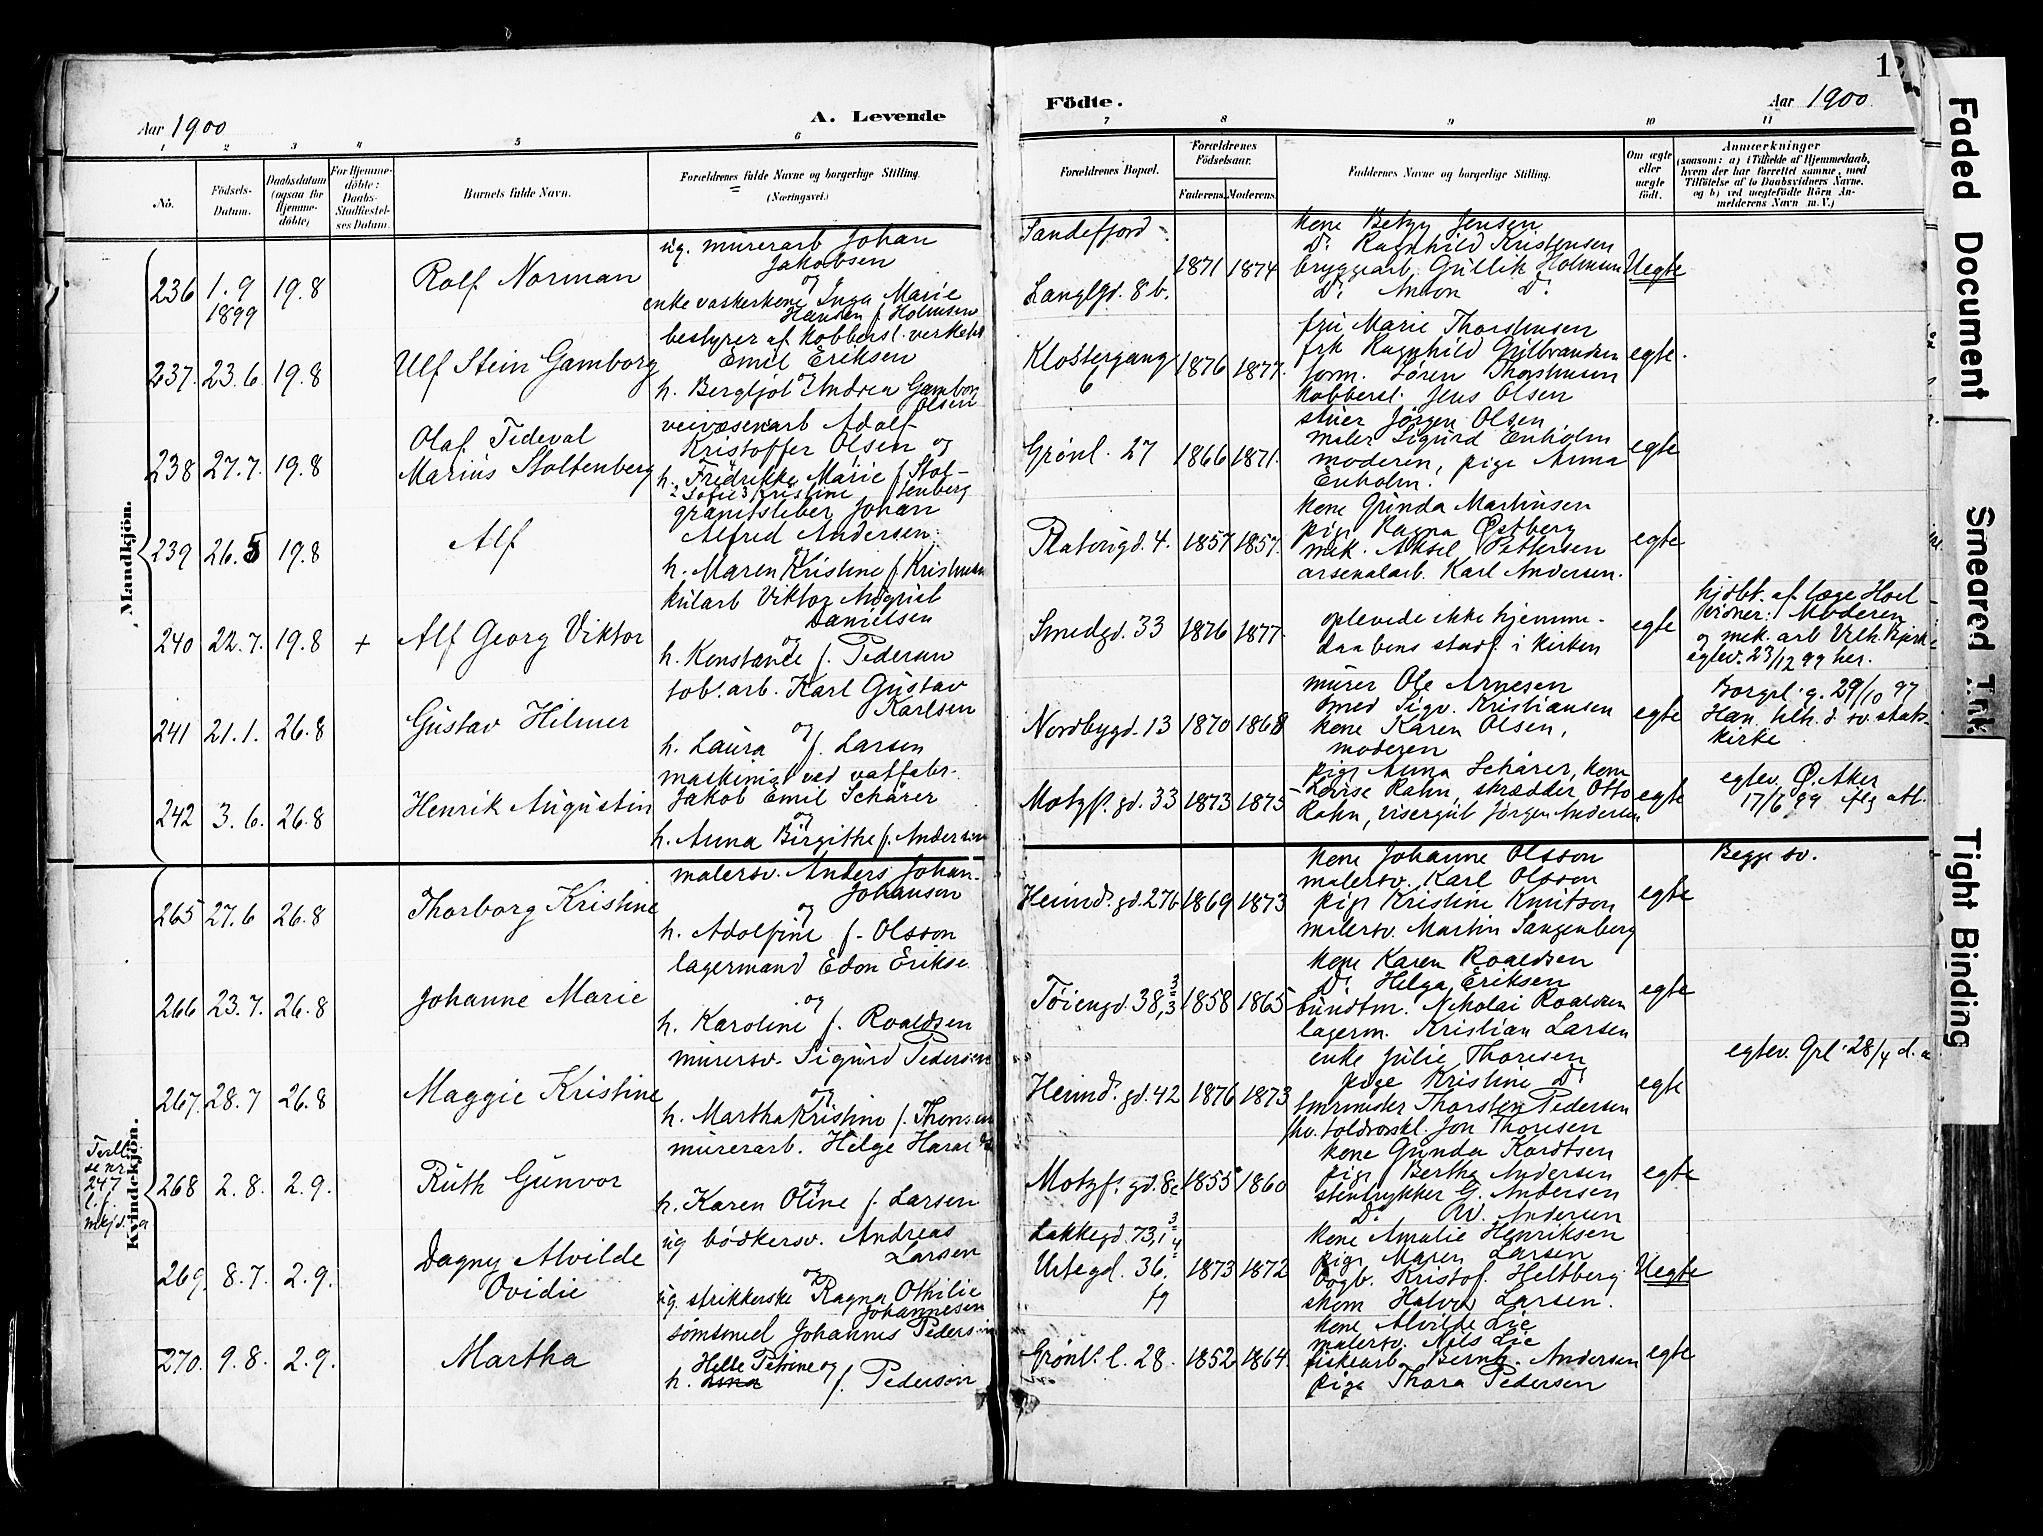 1
Aar 1900
A. Levende
Födte.
Aar 1900
1 2 3 4 5 6
7 8 9 10 11
No.
Födsels-Datum.
Daabsdatum (ogsaa for Hjemme-döbte)
For Hjemme-döbte: Daabs-Stadfæstel-ses Datum.
Barnets fulde Navn.
Forældrenes fulde Navne og borgerlige Stilling.
(Næringsvei.)
Forældrenes Bopæl.
Forældrenes Födselsaar.
Faderens. Moderens.
Faddernes Navne og borgerlige Stilling.
Om ægte eller uægte födt.
Anmærkninger
(saasom: a) i Tilfælde af Hjemmedaab, hvem der har forrettet samme, med Tilföielse af to Daabsvidners Navne. b) ved uegtefödte Börn An-melderens Navn m.V.)
Mandkjön.
236 1.9 1899 19.8 Rolf Norman
ug. murerarb Johan
Jakobsen
og
enke vaskerkone Inga Marie
Hansen f. Holmsen
Sandefjord
Langlgd. 8 b.
1871 1874
kone Betzy Jensen
Do Ragnhild Kristensen
bryggearb. Gullik Holmsen
Do Anton Do
Uegte
237. 23.6. 19.8 Ulf Stein Gamborg
bestyrer af kobberst. verksted
Emil Eriksen
og
h. Bergljot Andrea Gamborg
Olsen
Klostergang
6
1876 1877.
fru Marie Thorshusen
frk Ragnhild Gulbrandsen
form. Sören Thorshusen
kobberst. Jens Olsen
egte.
238 27.7. 19.8 Olaf Tideval
Marius Stoltenberg
veivæsenarb Adolf
Kristoffer Olsen og
h. Fredrikke Marie f. Stol-
Sofie Kristine tenberg
Grönl. 27 1866 1871.
stuer Jörgen Olsen
maler Sigurd Enholm
moderen, pige Anna
Enholm.
egte
239 26.5 19.8 Alf
granitsliber Johan
Alfred Andersen
og
h. Maren Kristine f. Kristiansen
Platousgd. 4. 1857 1857.
kone Gunda Martinsen
pige Ragna Østberg
mek. Aksel Pettersen
arsenalarb. Karl Andersen.
egte
240 22.7. 19.8 + Alf Georg Viktor
kularb Viktor August
Danielsen
og
h. Konstance f. Pedersen
Smedgd. 33 1876 1877.
oplevede ikke hjemme-
daabens stadf. i kirken
egte
hjdbt. af læge Hoel
Moderen
og mek. arb Vilh.
egtev. 23/12 99 her.
241 21.1. 26.8 Gustav Hilmer
tob. arb. Karl Gustav
Karlsen
og
h. Laura f. Larsen
Nordbygd. 13 1870 1868
murer Ole Arnesen
smed Sigv. Kristiansen
kone Karen Olsen,
moderen
egte
Borgerl. g. 29/10 97
Han tilh. d. sv. stats-
kirke
242 3.6. 26.8 Henrik Augustin
maskinist ved vatfabr.
Jakob Emil Schärer
og
h. Anna Birgithe f. Andersen
Motzf. gd. 33 1873 1875
pige Anna Schärer, kone
Lovise Rahn, skrædder Otto
Rahn, visergut Jörgen Andersen
egte
egtev. Ø. Aker
17/6 99
Kvindekjön.
265 27.6 26.8 Thorborg Kristine
malersv. Anders Johan
Johanson
og
h. Adolfine f. Olsson
Heimd. gd. 27b 1869 1873
kone Johanne Olsson
malersv. Karl Olsson
pige Kristine Knutson
malersv. Martin Langenberg
egte
Begge sv.
266 23.7. 26.8 Johanne Marie
lagermand Edon Erikse
og
h. Karoline f. Roaldsen
Töiengd. 38, 1858 1865
kone Karen Roaldsen
Do Helga Eriksen
bundtm. Nikolai Roaldsen
lagerm. Kristian Larsen
egte
267. 28.7 26.8 Maggie Kristine
murersv. Sigurd Pedersen
og
h. Martha Kristine f. Thoresen
Heimd. gd. 42 1876 1873
enke Julie Thoresen
pige Kristine Do
Thorsten Pedersen
Jon Thoresen
egte
egtev. Grl. 28/4 d. a
268 2.8. 2.9. Ruth Gunvor
murerarb. Helge Harald
og
h. Karen Oline f. Larsen
Motzf. gd. 8c 1855 1860
kone Gunda Kordtsen
pige Bertha Andersen
stentrykker G. Andersen
Do W. Andersen
egte
269. 8.7. 2.9. Dagny Alvilde
Ovidie
ug bödkersv. Andreas
Larsen
og
ug. strikkerske Ragna Othilie
Johannesen
Lakkegd. 73,
Urtegd. 36.
1873 1872
kone Amalie Henriksen
pige Maren Larsen
bogb. Kristof. Heltberg
skom Halvor Larsen.
Uegte
270. 9.8. 2.9. Martha
sömsmed Johannes Pedersen
Helle Petrine og
h. Lina f. Pederson
Grönl. l. 28. 1852 1864.
kone Alvilde Lie
malersv. Nils Lie
fiskearb. Bernh. Andersen
pige Thora Pedersen
egte
se nr
247
Faded Document
Smeared Ink
Tight Binding